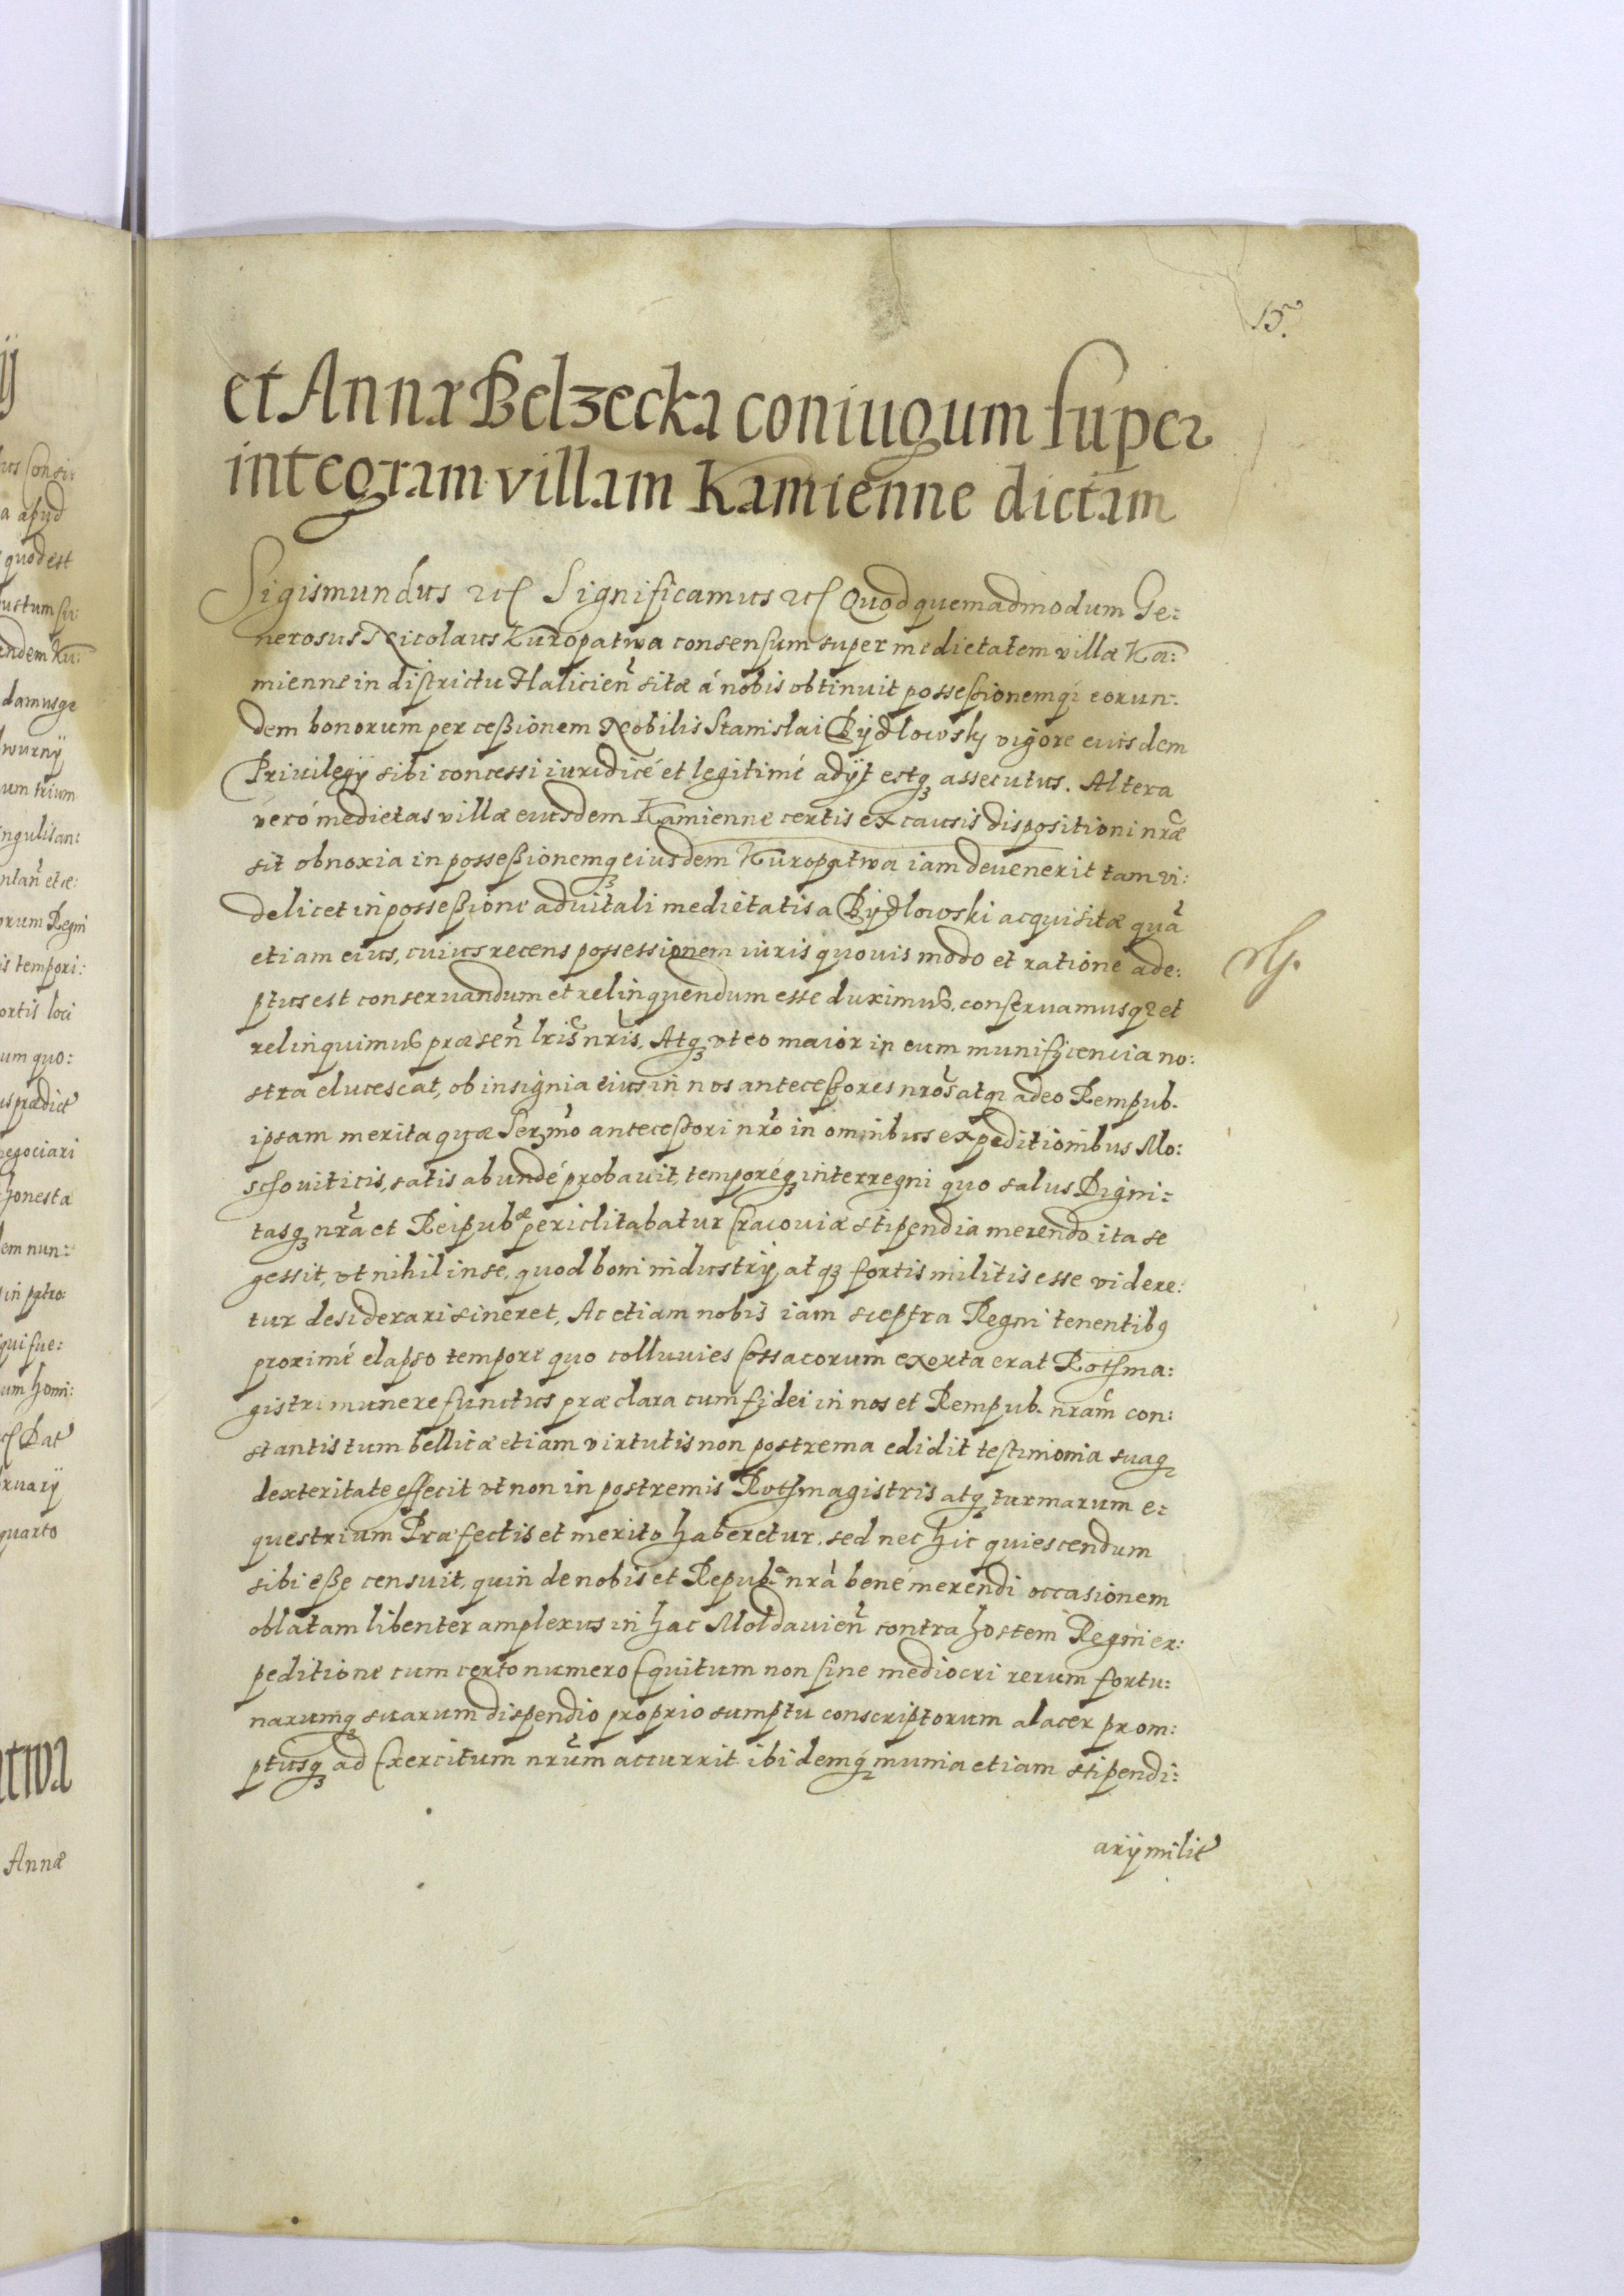 15.
et Annæ Belzecka coniugum super
integram villam Kamienne dictam
Sigismundus etc Significamus etc Quod quemadmodum Ge:
nerosus Nicolaus Kuropatwa consensum super medietatem villæ Ka:
mienne in districtu Halicien̄ sitæ á nobis obtinuit possessionemq́ꝫ eorun:
dem bonorum per cessionem Nobilis Stanislai Bÿdlowskÿ vigore eiusdem
Priuilegÿ sibi concessi iuridicé et legitimé adÿt estqꝫ assecutus. Altera
veró medietas villæ eiusdem Kamienne certis ex causis dispositioni nr̄æ
sit obnoxia in possessionemqꝫ eiusdem Kuropatwa iam deuenerit tam vi:
delicet in possessione aduitali medietatis a Bÿdlowski acquisitæ quā
etiam eius, cuius recens possessionem iuris quouis modo et ratione ade:
ptus est conseruandum et relinquendum esse duximus, conseruamusqꝫ et
relinquimus præsen̄ lr̄is nr̄is, Atqꝫ vt eo maior in eum munificencia no:
stra elucescat, ob insignia eius in nos antecessores nr̄os atqꝫ adeo Rempub.
ipsam merita quæ Serm̄o antecessori nr̄o in omnibus expeditionibus Mo:
schouiticis, satis abundé probauit, temporéqꝫ interregni quo salus Digni:
tasqꝫ nr̄a et Reipubæ periclitabatur Cracouiæ stipendia merendo ita se
gessit, vt nihil in se, quod boni industrÿ atqꝫ fortis militis esse videre:
tur desiderari sineret, Ac etiam nobis iam sceptra Regni tenentibꝰ
proximé elapso tempore quo colluuies Cossacorum exorta erat Rothma:
gistri munere functus præclara cum fidei in nos et Rempub. nr̄am con:
stantis tum bellicæ etiam virtutis non postrema edidit testimonia suaqꝫ
dexteritate effecit vt non in postremis Rothmagistris atqꝫ turmarum e:
questrium Præfectis et merito haberetur. sed nec hic quiescendum
sibi esse censuit, quin de nobis et Repub.ᵃ nr̄a bené merendi occasionem
oblatam libenter amplexus in hac Moldauien̄ contra hostem Regni ex:
peditione cum certo numero Equitum non sine mediocri rerum fortu:
narumqꝫ suarum dispendio proprio sumptu conscriptorum alacer prom:
ptusqꝫ ad Exercitum nr̄um accurrit ibidemq́ꝫ munia etiam stipendi:
arÿ milit